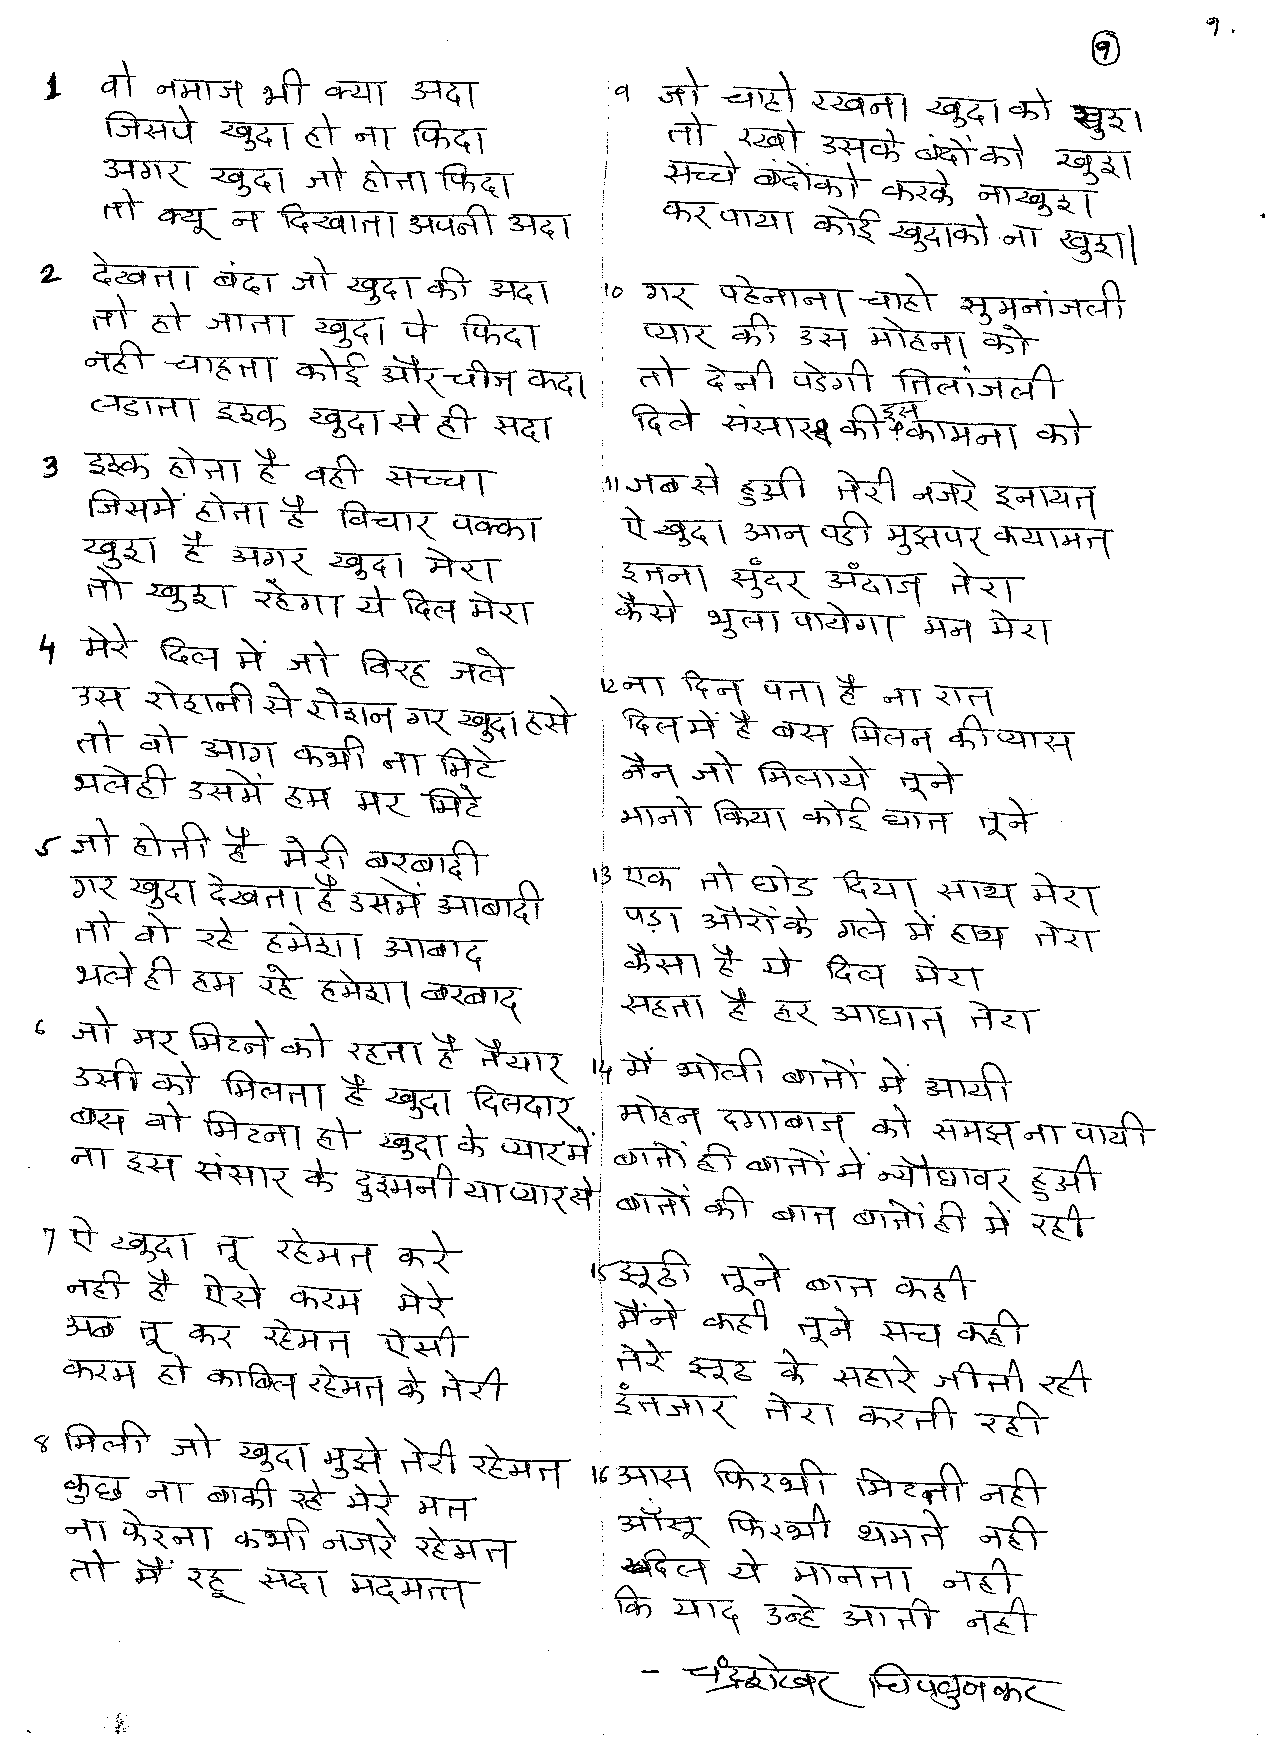 १.
१
1 वो नमाज़ भी क्या अदा
जिसपे खुदा हो ना फिदा
अगर खुदा जो होता फिदा
तो क्यू न दिखाता अपनी अदा
2 देखता बंदा जो खुदा की अदा
तो हो जाता खुदा पे फिदा
नही चाहता कोई और चीज कदा
लडाता इश्क खुदा से ही सदा
3 इश्क होता है वही सच्चा
जिसमें होता है विचार पक्का
खुश है अगर खुदा मेरा
तो खुश रहेगा ये दिल मेरा
4 मेरे दिल में जो विरह जले
उस रोशनी से रोशन गर खुदा हसे
तो वो आग कभी ना मिटे
भलेही उसमें हम मर मिटे
5 जो होती है मेरी बरबादी
गर खुदा देखता है उसमें आबादी
तो वो रहे हमेशा आबाद
भले ही हम रहे हमेशा बरबाद
6 जो मर मिटने को रहता है तैयार
उसी को मिलता है खुदा दिलदार
बस वो मिटना हो खुदा के प्यार में
ना इस संसार के दुश्मनी या प्यार से
7 ऐ खुदा तू रहेमत करे
नही है ऐसे करम मेरे
अब तू कर रहेमत ऐसी
करम हो काबिल रहेमत के तेरी
8 मिली जो खुदा मुझे तेरी रहेमत
कुछ ना बाकी रहे मेरे मत
ना फेरना कभी नजरे रहेमत
तो मैं रहू सदा मदमत्त
9 जो चाहो रखना खुदा को खुश
तो रखो उसके बंदोंको खुश
सच्चे बंदोंको करके नाखुश
कर पाया कोई खुदाको ना खुश।
10 गर पहेनाना चाहो सुमनांजली
प्यार की उस मोहना को
तो देनी पडेगी तिलांजली
दिले संसार की इस कामना को
11 जब से हुअी तेरी नजरे इनायत
ऐ खुदा आन पडी मुझपर कयामत
इतना सुंदर अंदाज़ तेरा
कैसे भुला पायेगा मन मेरा
12 ना दिन पता है ना रात
दिल में है बस मिलन की प्यास
नैन जो मिलाये तूने
मानो किया कोई घात तूने
13 एक तो छोड दिया साथ मेरा
पडा औरों के गले में हाथ तेरा
कैसा है ये दिल मेरा
सहता है हर आघात तेरा
14 मैं भोली बातों में आयी
मोहन दगाबाज़ को समझ ना पायी
बातों ही बातों में न्यौछावर हुअी
बातों की बात बातों ही में रही
15 झूठी तूने बात कही
मैंने कही तूने सच कही
तेरे झूठ के सहारे जीती रही
इंतजार तेरा करती रही
16 आस फिरभी मिटती नही
आँसू फिरभी थमते नही
दिल ये मानता नही
कि याद उन्हे आती नही
- चंद्रशेखर चिपळुनकर